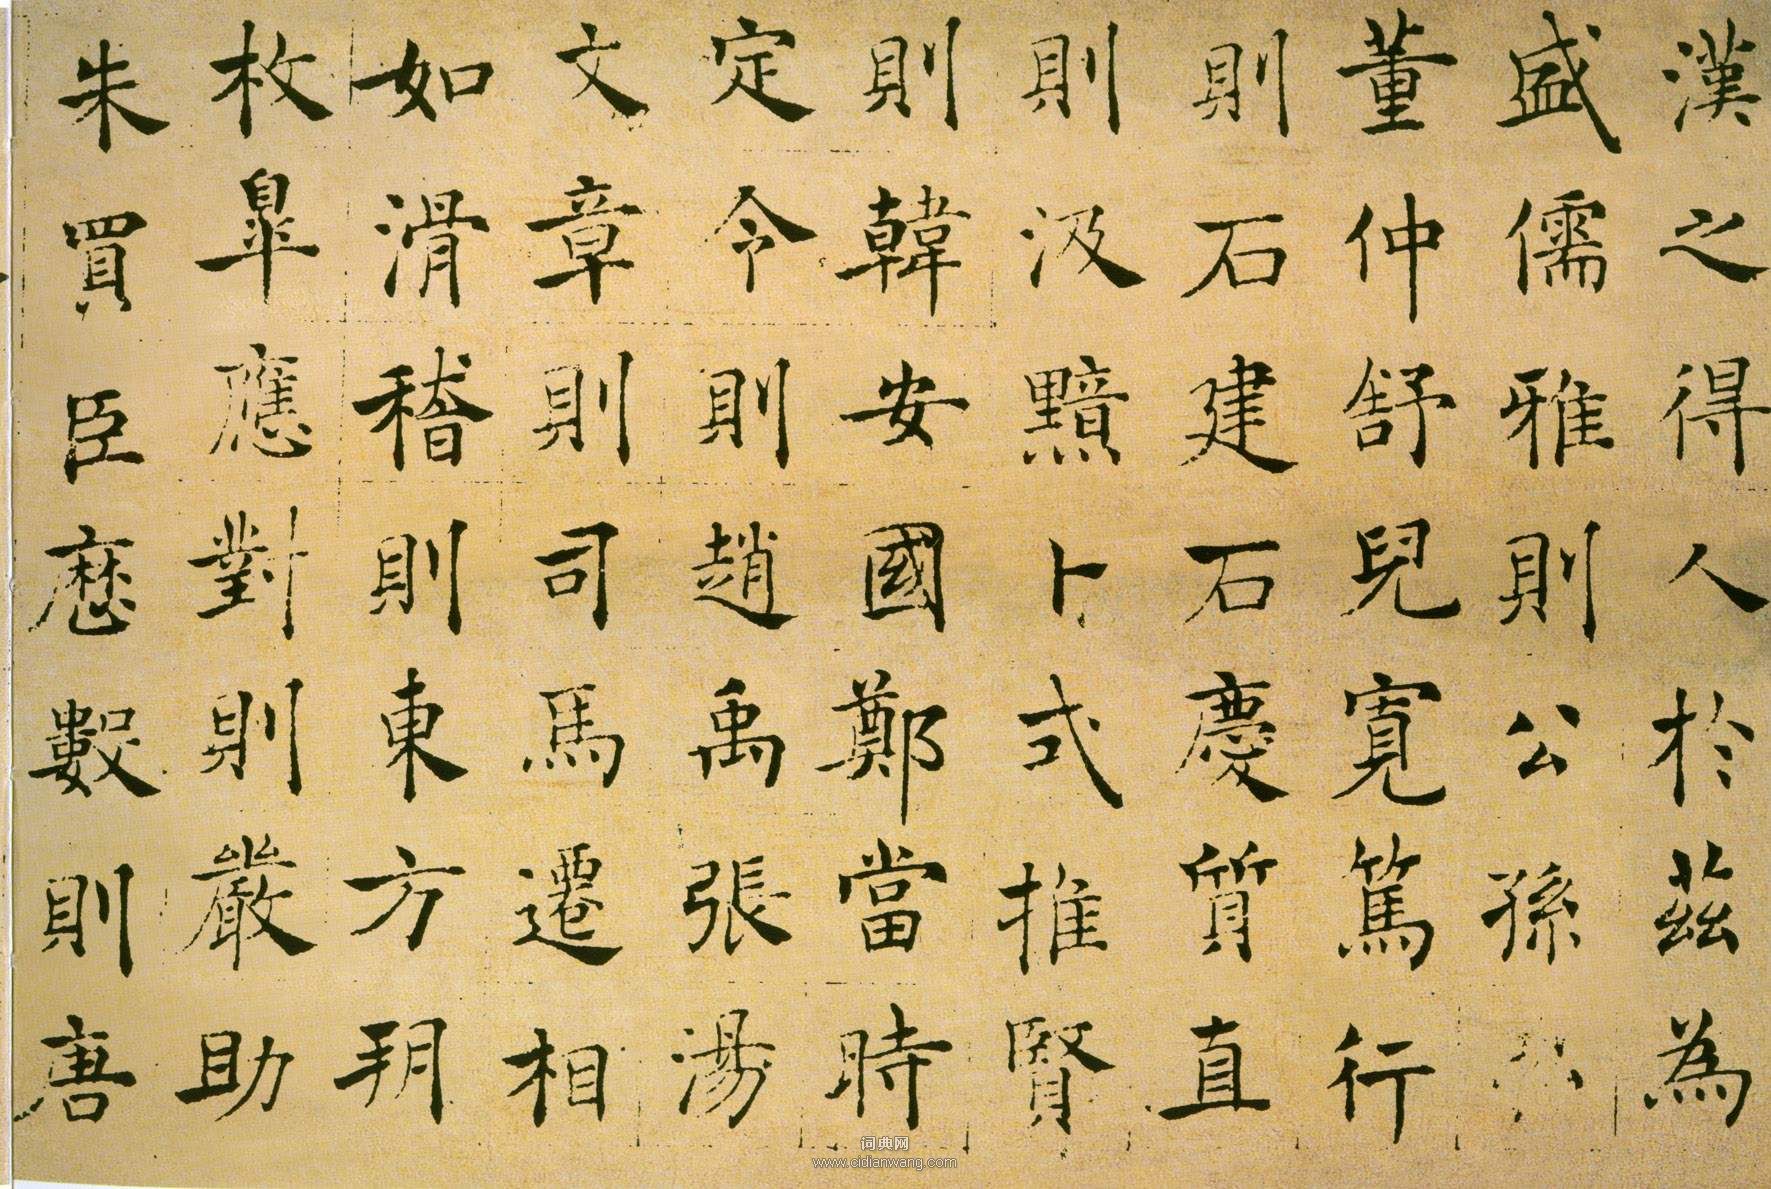 漢之得人於茲為
盛儒雅則公孫
董仲舒兒寬篤行
則石建石慶質直
則汲黯卜式推賢
則韓安國鄭當時
定令則趙禹張湯
文章則司馬遷相
如滑稽則東方朔
枚皋應對則嚴助
朱買臣歷數則唐
词典网
www.cidianwang.com